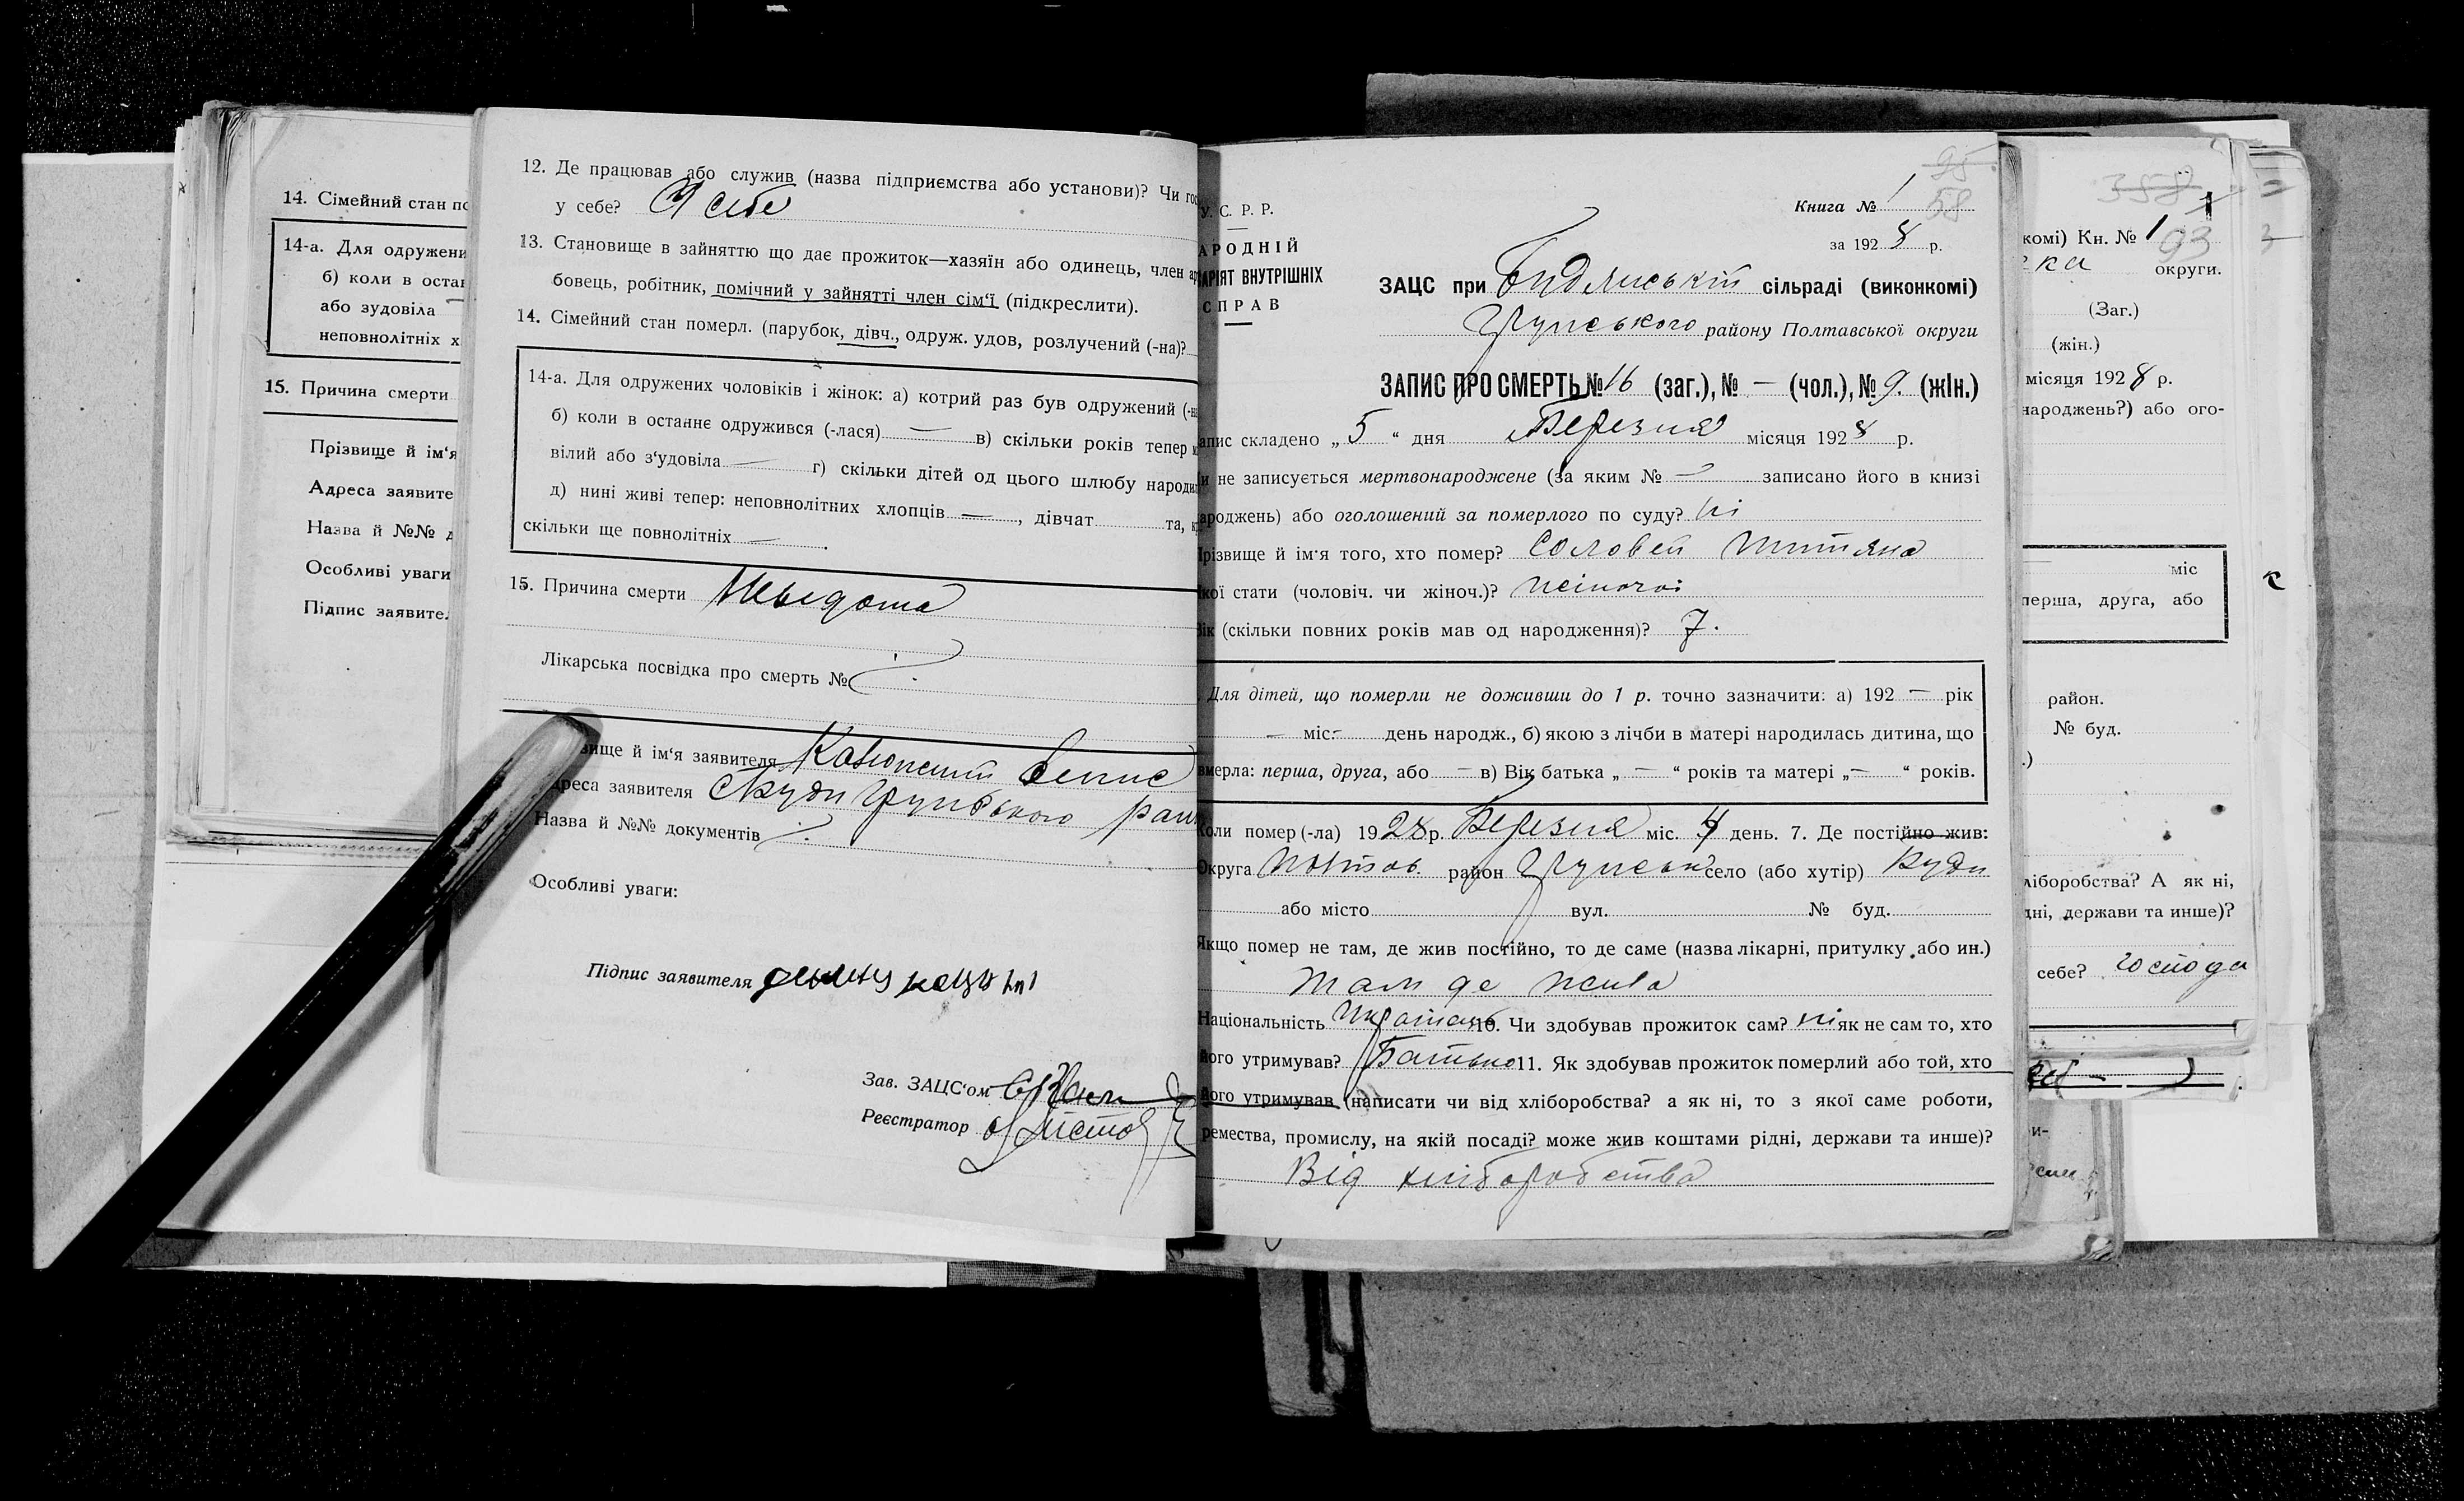 14. Сімейний стан по
14-а. Для одружени
б) коли в остан
або зудовіла
неповнолітніх х
15. Причина смерти
Прізвище й ім‘я
Адреса заявите
Назва й №№ д
Особливі уваги
Підпис заявител
12. Де працював або служив (назва підприємства або установи)? Чи гос
у себе? У себе
13. Становище в зайняттю що дає прожиток—хазяїн або одинець, член ар
бовець, робітник, помічний у зайнятті член сім‘ї (підкреслити).
14. Сімейний стан померл. (парубок, дівч., одруж. удов, розлучений (-на)?
14-а. Для одружених чоловіків і жінок: а) котрий раз був одружений (-на
б) коли в останнє одружився (-лася) — в) скільки років тепер м
вілий або з‘удовіла — г) скільки дітей од цього шлюбу народил
д) нині живі тепер: неповнолітних хлопців —, дівчат та, к
скільки ще повнолітніх —.
15. Причина смерти Невідома
Лікарська посвідка про смерть №
вище й ім‘я заявителя Денис
дреса заявителя с Куди Грунського рай
Назва й №№ документів
Особливі уваги:
Підпис заявителя
Зав. ЗАЦС‘ом
Реєстратор
95
58
У. С. Р. Р.
Книга № 1
АРОДНІЙ
за 192 8 р.
АРІЯТ ВНУТРІШНІХ
СПРАВ
ЗАЦС при сільраді (виконкомі)
Грунського району Полтавської округи
ЗАПИС ПРО СМЕРТЬ № 16 (заг.), № — (чол.), № 9. (жін.)
апис складено „ 5 “ дня Березня місяця 192 8 р.
и не записується мертвонароджене (за яким № — записано його в книзі
ароджень) або оголошений за померлого по суду? Ні
Прізвище й ім‘я того, хто помер? Соловей Титяна
Якої стати (чоловіч. чи жіноч.)? жіночоі
Вік (скільки повних років мав од народження)? 7.
. Для дітей, що померли не доживши до 1 р. точно зазначити: а) 192 — рік
— міс.- день народж., б) якою з лічби в матері народилась дитина, що
вмерла: перша, друга, або — в) Вік батька „ — “ років та матері „— “ років.
Коли помер (-ла) 1928 р. Березня міс. 4 день. 7. Де постійно жив:
Округа Полтав. район Грунськ село (або хутір) Куди
або місто вул. № буд.
Якщо помер не там, де жив постійно, то де саме (назва лікарні, притулку або ин.)
там де жила
Національність 10. Чи здобував прожиток сам? Ні як не сам то, хто
його утримував? Батько 11. Як здобував прожиток померлий або той, хто
його утримував (написати чи від хліборобства? а як ні, то з якої саме роботи,
ремества, промислу, на якій посаді? може жив коштами рідні, держави та инше)?
Від хліборобства
358
1
комі) Кн. № 1
93
ка округи.
(Заг.)
(жін.)
місяця 1928 р.
народжень?) або ого-
міс
перша, друга, або
район.
№ буд.
.)
ліборобства? А як ні,
дні, держави та инше)?
себе? господа
и-